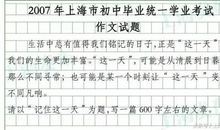 2007年上海市初中毕业统一学业考试
作文试题
生活中总有值得我们铭记的日子,正是“这一天”
我们的生命更加丰富。“这一天”,可能是从清晨到日暮
那么不同寻常;也可能是某一个时刻让“这一天”变
不同凡响。
请以“记住这一天”为题,写一篇600字左右的文章。